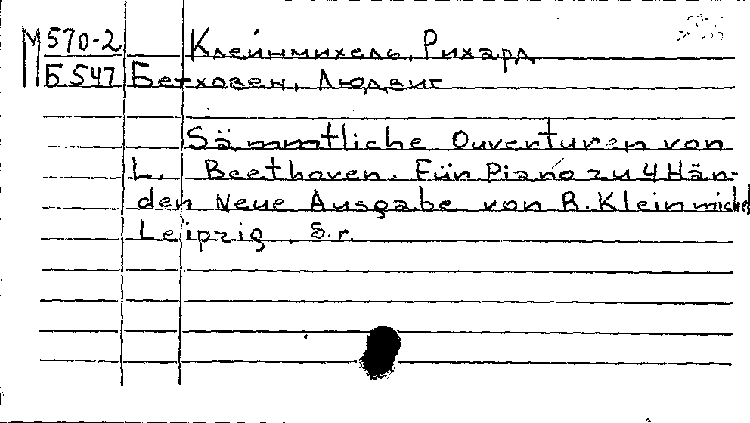 М 570-2 Клейнмихель, Рихард
Б 547 Бетховен, Людвиг
Sämmtliche Ouverturen von
L. Beethoven. Für Piano zu 4 Hän-
den Neue Ausgabe von R. Kleinmichel
Leipzig s.r.